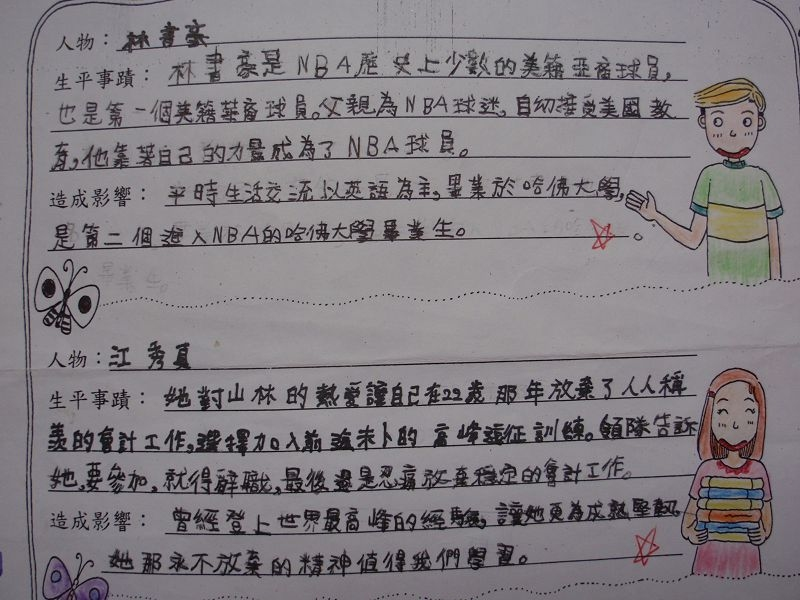 人物：林書豪
生平事蹟：林書豪是NBA歷史上少數的美籍亞裔球員，
也是第一個美籍華裔球員。父親為NBA球迷，自幼接受美國教
育，他靠著自己的力量成為了NBA球員。
造成影響：平時生活交流以英語為主，畢業於哈佛大學，
是第二個進入NBA的哈佛大學畢業生。
人物：江秀真
生平事蹟：她對山林的熱愛讓自己在22歲那年放棄了人人稱
羨的會計工作，選擇加入前途未卜的高峰遠征訓練。領隊告訴
她，要參加，就得辭職，最後還是忍痛放棄穩定的會計工作。
造成影響：曾經登上世界最高峰的經驗，讓她更為成熟堅韌。
她那永不放棄的精神值得我們學習。